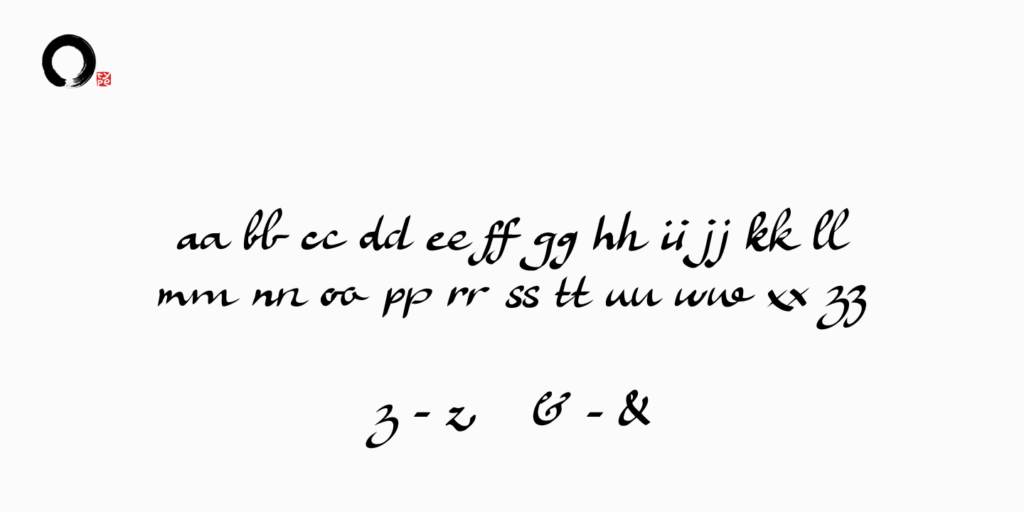 type
aa bb cc dd ee ff gg hh ii jj kk ll
mm nn oo pp rr ss tt uu ww xx zz
z - z & - &